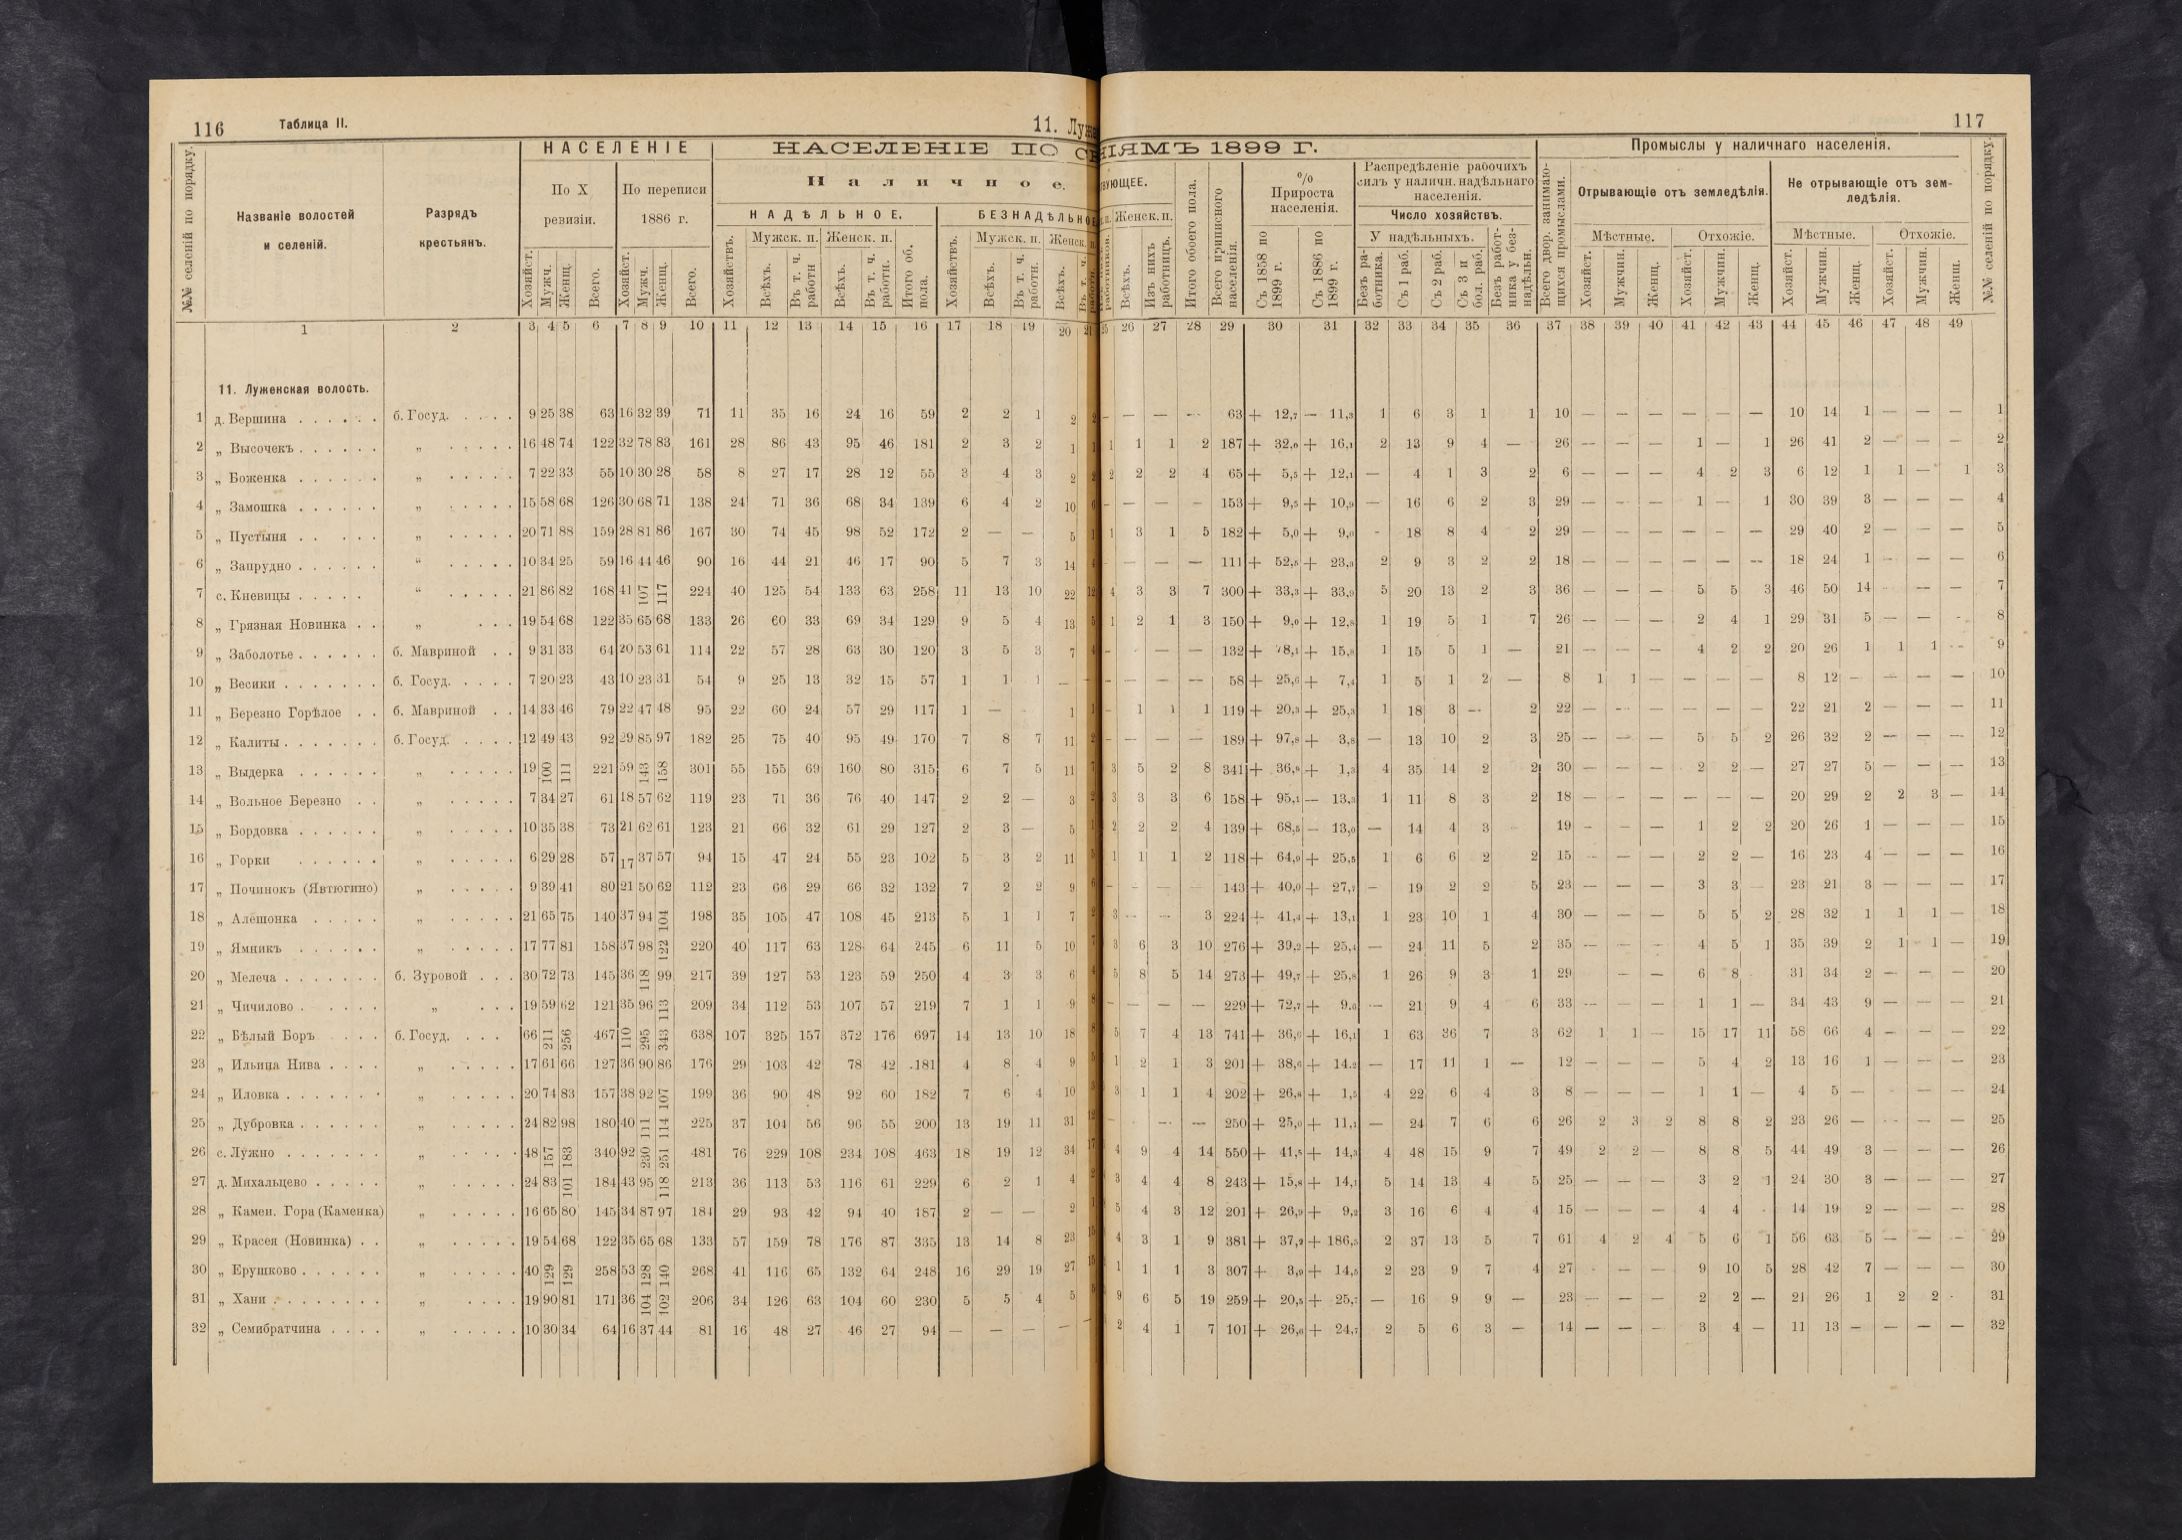 116 Таблица II. 11. Луже
117
НАСЕЛЕНІЕ
НАСЕЛЕНІЕ ПО СЕ
НІЯМЪ 1899 Г.
Промыслы у наличнаго населенія.
№№ селеній по порядку.
Названіе волостей и селеній.
Разрядъ крестьянъ.
По X ревизіи.
По переписи 1886 г.
Наличное.
НАДѢЛЬНОЕ.
БЕЗНАДѢЛЬНОЕ
Мужск. п. Женск. п.
Мужск. п. Женск. п.
Хозяйст. Мужч. Женщ. Всего. Хозяйст. Мужч. Женщ. Всего.
Хозяйствъ. Всѣхъ. Въ т. ч. работн Всѣхъ. Въ т. ч. работн. Итого об. пола.
Хозяйствъ. Всѣхъ. Въ т. ч. работн. Всѣхъ. Въ т. ч.
ВУЮЩЕЕ.
Женск. п.
Всѣхъ. Изъ нихъ работницъ. Итого обоего пола. Всего приписного населенія.
% Прироста населенія.
Съ 1858 по 1899 г. Съ 1886 по 1899 г.
Распредѣленіе рабочихъ силъ у наличн. надѣльнаго населенія.
Число хозяйствъ.
У надѣльныхъ.
Безъ работника. Съ 1 раб. Съ 2 раб. Съ 3 и бол. раб. Безъ работника у безнадѣльн.
Всего двор. занимающихся промыслами.
Отрывающіе отъ земледѣлія.
Не отрывающіе отъ земледѣлія.
Мѣстные. Отхожіе. Мѣстные. Отхожіе.
Хозяйст. Мужчин. Женщ. Хозяйст. Мужчин. Женщ. Хозяйст. Мужчин. Женщ. Хозяйст. Мужчин. Женщ.
№№ селеній по порядку.
1 2 3 4 5 6 7 8 9 10 11 12 13 14 15 16 17 18 19 20 21 25 26 27 28 29 30 31 32 33 34 35 36 37 38 39 40 41 42 43 44 45 46 47 48 49
11. Луженская волость.
1 д. Вершина б. Госуд. 9 25 38 63 16 32 39 71 11 35 16 24 16 59 2 2 1 2 2 — — — — 63 + 12,7 — 11,3 1 6 3 1 1 10 — — — — — — 10 14 1 — — — 1
2 „ Высочекъ „ 16 48 74 122 32 78 83 161 28 86 43 95 46 181 2 3 2 1 1 1 1 1 2 187 + 32,0 + 16,1 2 13 9 4 — 26 — — — 1 — 1 26 41 2 — — — 2
3 „ Боженка „ 7 22 33 55 10 30 28 58 8 27 17 28 12 55 3 4 3 2 2 2 2 2 4 65 + 5,5 + 12,1 — 4 1 3 2 6 — — — 4 2 3 6 12 1 1 — 1 3
4 „ Замошка „ 15 58 68 126 30 68 71 138 24 71 36 68 34 139 6 4 2 10 6 — — — — 153 + 9,5 + 10,9 — 16 6 2 3 29 — — — 1 — 1 30 39 3 — — — 4
5 „ Пустыня „ 20 71 88 159 28 81 86 167 30 74 45 98 52 172 2 — — 5 1 1 3 1 5 182 + 5,0 + 9,0 - 18 8 4 2 29 — — — — — — 29 40 2 — — — 5
6 „ Запрудно “ 10 34 25 59 16 44 46 90 16 44 21 46 17 90 5 7 3 14 4 — — — — 111 + 52,5 + 23,3 2 9 3 2 2 18 — — — — — — 18 24 1 — — — 6
7 с. Кневицы “ 21 86 82 168 41 107 117 224 40 125 54 133 63 258 11 13 10 22 12 4 3 3 7 300 + 33,3 + 33,9 5 20 13 2 3 36 — — — 5 5 3 46 50 14 — — — 7
8 „ Грязная Новинка „ 19 54 68 122 35 65 68 133 26 60 33 69 34 129 9 5 4 13 5 1 2 1 3 150 + 9,0 + 12,8 1 19 5 1 7 26 — — — 2 4 1 29 31 5 — — - 8
9 „ Заболотье б. Мавриной 9 31 33 64 20 53 61 114 22 57 28 63 30 120 3 5 3 7 4 - - — — 132 + 78,1 + 15,8 1 15 5 1 — 21 — — — 4 2 2 20 26 1 1 1 - 9
10 „ Весики б. Госуд. 7 20 23 43 10 23 31 54 9 25 13 32 15 57 1 1 1 — — — — — — 58 + 25,6 + 7,4 1 5 1 2 — 8 1 1 — — — — 8 12 — — — — 10
11 „ Березно Горѣлое б. Мавриной 14 33 46 79 22 47 48 95 22 60 24 57 29 117 1 — 1 1 - 1 1 1 119 + 20,3 + 25,3 1 18 3 — 2 22 — — — — — — 22 21 2 — — — 11
12 „ Калиты б. Госуд. 12 49 43 92 29 85 97 182 25 75 40 95 49 170 7 8 7 11 2 — — — — 189 + 97,8 + 3,8 — 13 10 2 3 25 — — — 5 5 2 26 32 2 — — — 12
13 „ Выдерка „ 19 100 111 221 59 143 158 301 55 155 69 160 80 315 6 7 5 11 7 3 5 2 8 341 + 36,8 + 1,3 4 35 14 2 2 30 — — — 2 2 — 27 27 5 — — — 13
14 „ Вольное Березно „ 7 34 27 61 18 57 62 119 23 71 36 76 40 147 2 2 — 3 2 3 3 3 6 158 + 95,1 — 13,3 1 11 8 3 2 18 — — — — — — 20 29 2 2 3 — 14
15 „ Бордовка „ 10 35 38 73 21 62 61 123 21 66 32 61 29 127 2 3 — 5 1 2 2 2 4 139 + 68,5 — 13,0 — 14 4 3 19 - — — 1 2 2 20 26 1 — — — 15
16 „ Горки „ 6 29 28 57 17 37 57 94 15 47 24 55 23 102 5 3 2 11 5 1 1 1 2 118 + 64,9 + 25,5 1 6 6 2 2 15 — — — 2 2 — 16 23 4 — — — 16
17 „ Починокъ (Явтюгино) „ 9 39 41 80 21 50 62 112 23 66 29 66 32 132 7 2 2 9 6 - — — 143 + 40,0 + 27,7 — 19 2 2 5 23 — — — 3 3 — 23 21 3 — — — 17
18 „ Алёшонка „ 21 65 75 140 37 94 104 198 35 105 47 108 45 213 5 1 1 7 2 3 — - 3 224 + 41,4 + 13,1 1 23 10 1 4 30 — — — 5 5 2 28 32 1 1 1 — 18
19 „ Ямникъ „ 17 77 81 158 37 98 122 220 40 117 63 128 64 245 6 11 5 10 7 3 6 3 10 276 + 39,2 + 25,4 — 24 11 5 2 35 — — — 4 5 1 35 39 2 1 1 — 19
20 „ Мелеча б. Зуровой 30 72 73 145 36 118 99 217 39 127 53 123 59 250 4 3 3 6 4 5 8 5 14 273 + 49,7 + 25,8 1 26 9 3 1 29 — — 6 8 31 34 2 — — — 20
21 „ Чичилово „ 19 59 62 121 35 96 113 209 34 112 53 107 57 219 7 1 1 9 8 — — — — 229 + 72,7 + 9,6 — 21 9 4 6 33 — — — 1 1 — 34 43 9 — — — 21
22 „ Бѣлый Боръ б. Госуд. 66 211 256 467 110 295 343 638 107 325 157 372 176 697 14 13 10 18 8 5 7 4 13 741 + 36,6 + 16,1 1 63 36 7 3 62 1 1 — 15 17 11 58 66 4 — — — 22
23 „ Ильина Нива „ 17 61 66 127 36 90 86 176 29 103 42 78 42 181 4 8 4 9 5 1 2 1 3 201 + 38,6 + 14,2 — 17 11 1 — 12 — — — 5 4 2 13 16 1 — — — 23
24 „ Иловка „ 20 74 83 157 38 92 107 199 36 90 48 92 60 182 7 6 4 10 3 3 1 1 4 202 + 26,8 + 1,5 4 22 6 4 3 8 — — — 1 1 — 4 5 — — — 24
25 „ Дубровка „ 24 82 98 180 40 111 114 225 37 104 56 96 55 200 13 19 11 31 12 - — — 250 + 25,0 + 11,1 — 24 7 6 6 26 2 3 2 8 8 2 23 26 — — — — 25
26 с. Лужно „ 48 157 183 340 92 230 251 481 76 229 108 234 108 463 18 19 12 34 17 4 9 4 14 550 + 41,5 + 14,3 4 48 15 9 7 49 2 2 — 8 8 5 44 49 3 — — — 26
27 д. Михальцево „ 24 83 101 184 43 95 118 213 36 113 53 116 61 229 6 2 1 4 2 3 4 4 8 243 + 15,8 + 14,1 5 14 13 4 5 25 — — — 3 2 1 24 30 3 — — — 27
28 „ Камен. Гора (Каменка) „ 16 65 80 145 34 87 97 184 29 93 42 94 40 187 2 — — 2 1 5 4 3 12 201 + 26,9 + 9,2 3 16 6 4 4 15 — — — 4 4 - 14 19 2 — — — 28
29 „ Красея (Новинка) „ 19 54 68 122 35 65 68 133 57 159 78 176 87 335 13 14 8 23 15 4 3 1 9 381 + 37,2 + 186,5 2 37 13 5 7 61 4 2 4 5 6 1 56 63 5 — — — 29
30 „ Ерушково „ 40 129 129 258 53 128 140 268 41 116 65 132 64 248 16 29 19 27 15 1 1 1 3 307 + 3,9 + 14,5 2 23 9 7 4 27 - — — 9 10 5 28 42 7 — — — 30
31 „ Хани „ 19 90 81 171 36 104 102 206 34 126 63 104 60 230 5 5 4 5 9 6 5 19 259 + 20,5 + 25,7 — 16 9 9 — 23 — — — 2 2 — 21 26 1 2 2 - 31
32 „ Семибратчина „ 10 30 34 64 16 37 44 81 16 48 27 46 27 94 — — — — — 2 4 1 7 101 + 26,6 + 24,7 2 5 6 3 — 14 — — — 3 4 — 11 13 — — — — 32